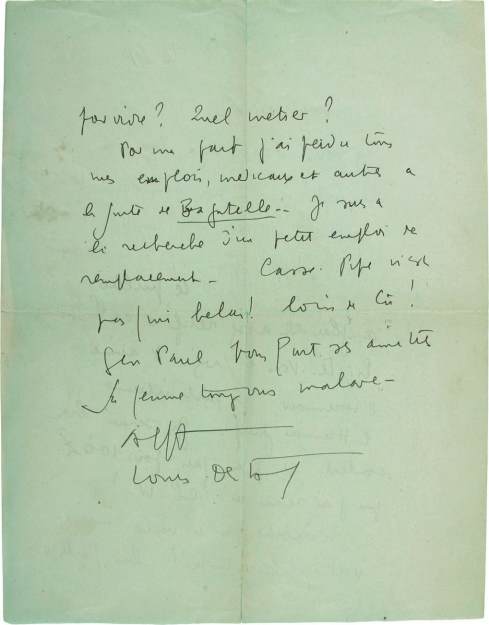 pour vivre ? Quel metier ?
Pour ma part j'ai perdu tous
mes emplois, medicaux et autres a
la suite de Bagatelle.. Je suis a
la recherche d'un petit emploi de
remplacement - Casse Pipe n'est
pas fini helas ! loin de là !
Gen Paul vous fait ses amitiés
Sa femme toujours malade -
Louis Dest